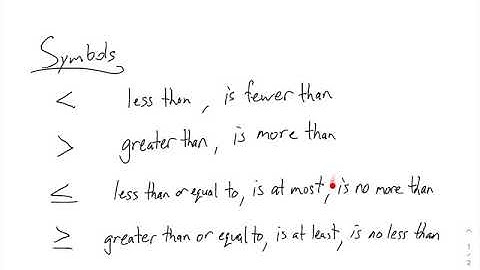 Symbols
< less than, is fewer than
> greater than, is more than
≤ less than or equal to, is at most, is no more than
≥ greater than or equal to, is at least, is no less than
1/2